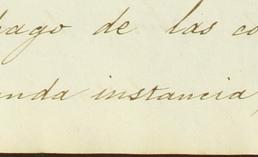 pago de las co
unda instancia,